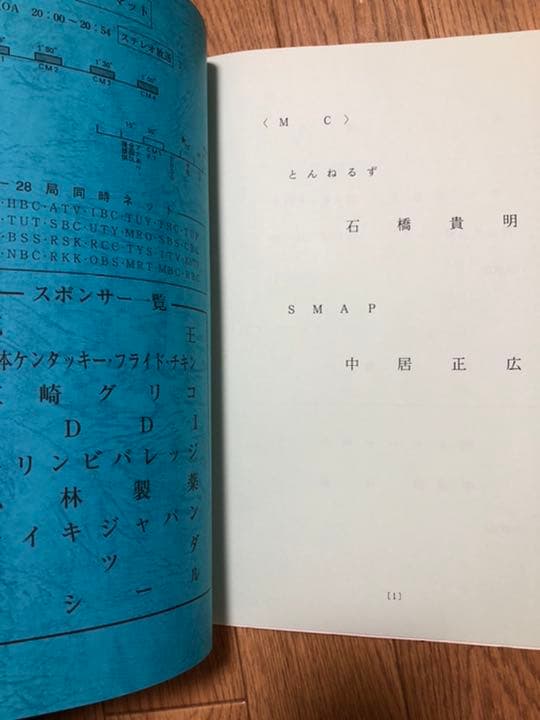 マット
OA 20:00～20:54 ステレオ放送
1'30"
1'00"
CM2
CM3
CM4
28局同時ネット
HBC・ATV・IBC・TUY・
TUT・SBC・UTY・MRO・SBS・CBC
BSS・RSK・RCC・TYS・ITV・
NBC・RKK・OBS・MRT・MBC・RBC
スポンサー覧
王
本ケンタッキー・フライド・チキン
崎グリコ
DDI
リンビバレッジ
林製薬
イキジャパン
ツダ
シール
〈MC〉
とんねるず
石橋貴明
SMAP
中居正広
[1]